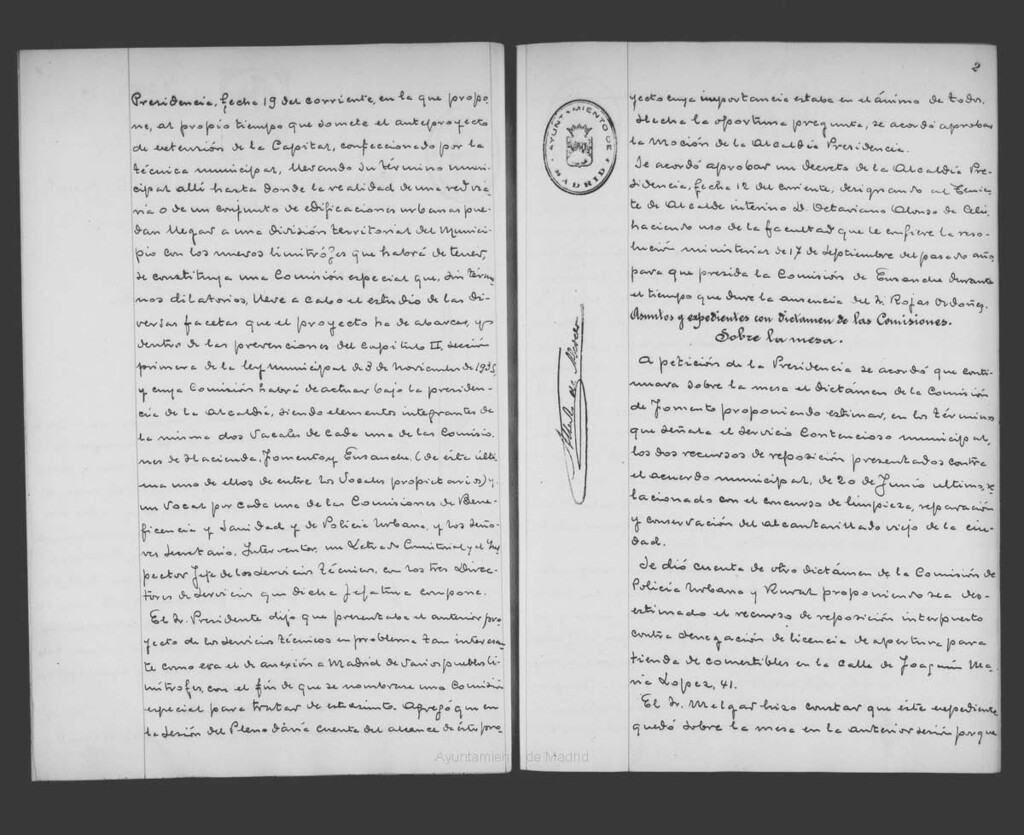 Presidencia, fecha 19 del corriente, en la que propo-
ne, al propio tiempo que somete el anteproyecto
de extensión de la Capital, confeccionado por la
técnica municipal, llevando su término muni-
cipal allí hasta donde la realidad de una red via-
ria o de un conjunto de edificaciones urbanas pue-
dan llegar a una división territorial del Munici-
pio con los nuevos limítrofes que habrá de tener,
se constituya una Comisión especial que, sin térmi-
nos dilatorios, lleve a cabo el estudio de las di-
versas facetas que el proyecto ha de abarcar, y
dentro de las prevenciones del Capitulo II, sección
primera de la ley municipal de 3 de Noviembre de 1935
y cuya Comisión habrá de actuar bajo la presiden-
cia de la Alcaldía, siendo elementos integrantes de
la misma dos Vocales de cada una de las Comisio-
nes de Hacienda, Fomento y Ensanche, (de esta últi-
ma uno de ellos de entre los Vocales propietarios) y
un Vocal por cada una de las Comisiones de Bene-
ficencia y Sanidad y de Policía Urbana, y los seño-
res Secretario, Interventor, un Letrado Consistorial y el Ins-
pector Jefe de los Servicios Técnicos, con los tres Direc-
tores de Servicios que dicha Jefatura compone.
El Sr. Presidente dijo que presentaba el anterior pro-
yecto de los servicios técnicos en problema tan interesan-
te como era el de anexión a Madrid de varios pueblos li-
mítrofes, con el fin de que se nombrase una Comisión
especial para tratar de este asunto. Agregó que en
la sesión del Pleno daría cuenta del alcance de este pro-
2
yecto cuya importancia estaba en el ánimo de todos.
Hecha la oportuna pregunta, se acordó aprobar
la moción de la Alcaldía Presidencia.
Se acordó aprobar un decreto de la Alcaldía Pre-
sidencia, fecha 12 del corriente, designando al Tenien-
te de Alcalde interino D. Octaviano Alonso de Celis,
haciendo uso de la facultad que le confiere la reso-
lución ministerial de 17 de Septiembre del pasado año,
para que presida la Comisión de Ensanche durante
el tiempo que dure la ausencia del Sr. Rojas Ordoñez.
Asuntos y expedientes con dictamen de las Comisiones.
Sobre la mesa.
A petición de la Presidencia se acordó que conti-
nuara sobre la mesa el dictámen de la Comisión
de Fomento proponiendo estimar, en los términos
que señala el Servicio Contencioso municipal,
los dos recursos de reposición presentados contra
el acuerdo municipal, de 20 de Junio ultimo, re-
lacionado con el concurso de limpieza, reparación
y conservación del alcantarillado viejo de la ciu-
dad.
Se dió cuenta de otro dictámen de la Comisión de
Policía Urbana y Rural proponiendo sea des-
estimado el recurso de reposición interpuesto
contra denegación de licencia de apertura para
tienda de comestibles en la calle de Joaquín Ma-
ría Lopez, 41.
El Sr. Melgar hizo constar que este expediente
quedó sobre la mesa en la anterior sesión porque
AYUNTAMIENTO DE MADRID
Ayuntamiento de Madrid